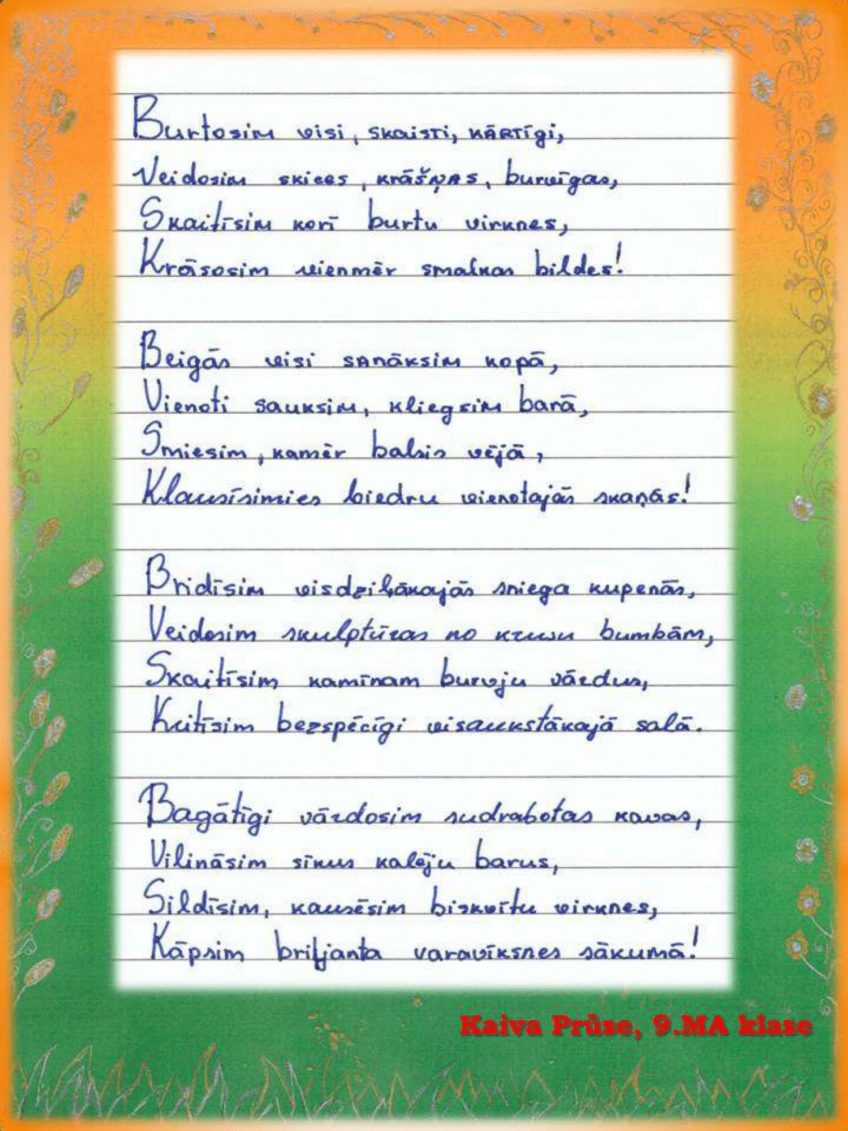 Burtosim visi, skaisti, kārtīgi,
Veidosim skices, krāšņas, burvīgas,
Skaitīsim korī burtu virknes,
Krāsosim vienmēr smalkas bildes!
Beigās visi sanāksim kopā,
Vienoti sauksim, kliegsim barā,
Smiesim, kamēr balsis vējā,
Klausīsimies biedru vienotajās skaņās!
Bridīsim visdziļākajās sniega kupenās,
Veidosim skulptūras no krusu bumbām,
Skaitīsim kamīnam burvju vārdus,
Kritīsim bezspēcīgi visaukstākajā salā.
Bagātīgi vārdosim sudrabotas kavas,
Vilināsim sīkus kaleju barus,
Sildīsim, kausēsim biskvītu virknes,
Kāpsim briljanta varavīksnes sākumā!
Kaiva Prūse, 9.MA klase